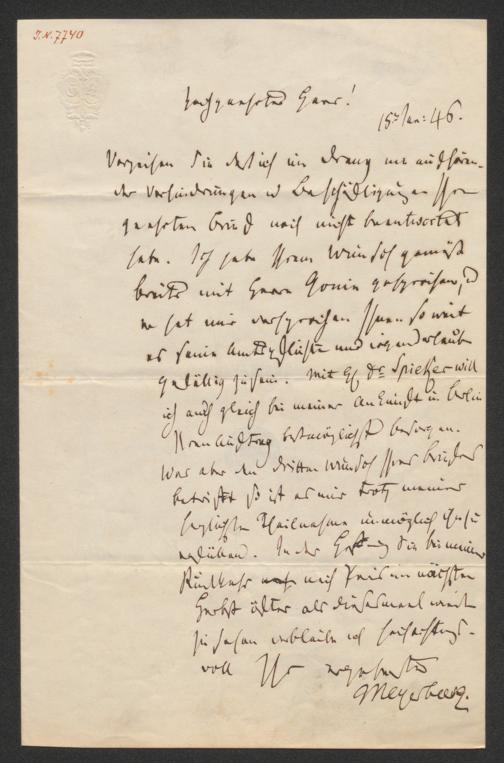 I.N. 7740
Hochgeehrter Herr!
15t Jan: 46.
Verzeihen Sie daß ich im Drang
der Verhinderungen u Beschäftigungen Ihren
geehrten Brief noch nicht beantwortet
habe. Ich habe Ihrem Wunsch gemäß
bereits mit Herrn Gouin gesprochen, u
er hat mir versprochen Ihnen so weit
es seine Amtspflichten und erlauben
gefällig zu sein. Mit H. Dr Spieker will
ich auch gleich bei meiner Ankunft in Berlin
Ihren Auftrag bestmöglichst besorgen.
Was aber den dritten Wunsch Ihres Briefes
betrifft so ist es mir trotz meiner
herzlichsten Theilnahme unmöglich
In der Hoffnung Sie bei meiner
Rückkehr nach Paris im nächsten
Herbst öfter als diesesmal
zu sehen verbleibe ich hochachtungs-
voll Ihr ergebenster
Meyerbeer.